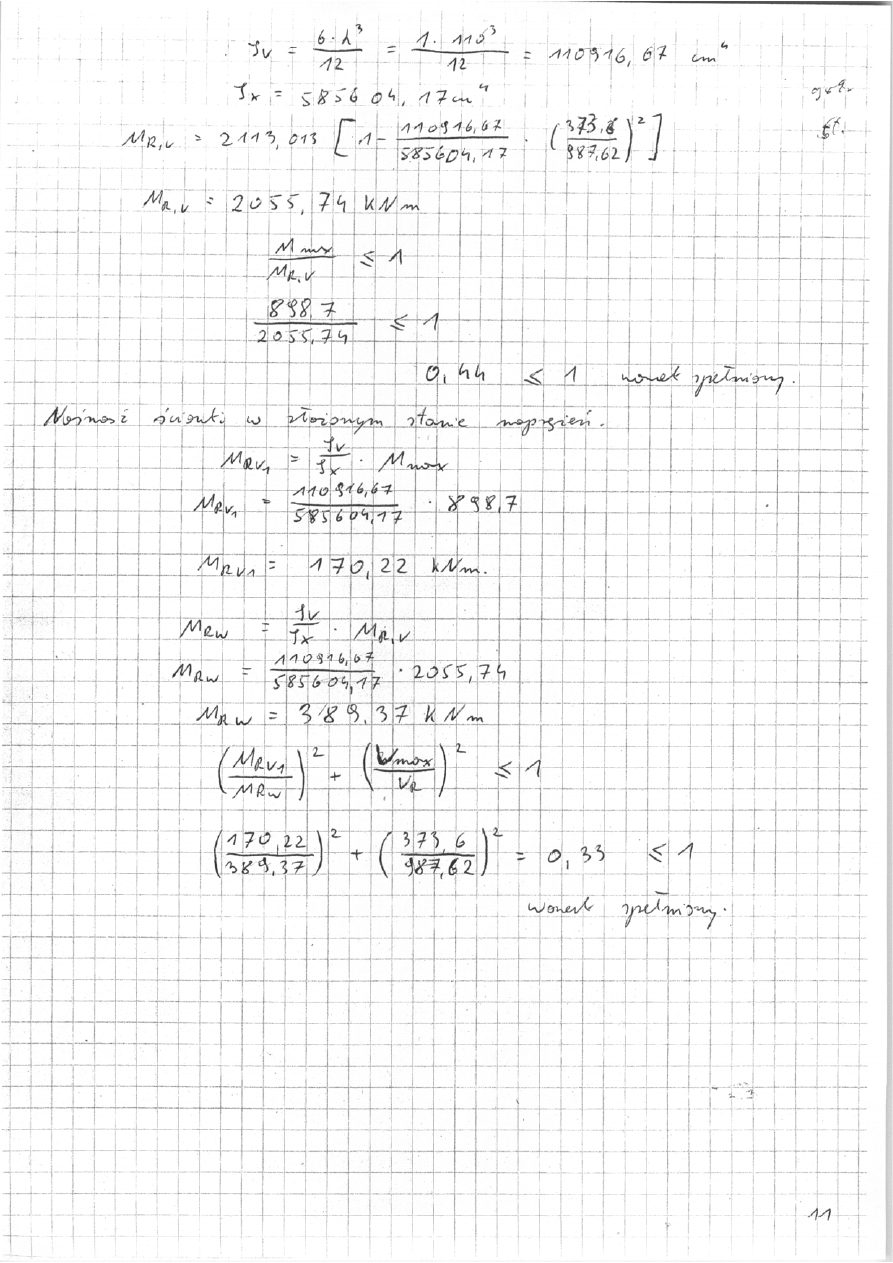 Jv = b·h³/12 = 1·110³/12 = 110916,67 cm⁴
Jx = 585604,17cm⁴
MR,V = 2113,013 [1 - 110916,67/585604,17 · (373,6/987,62)²]
MR,V = 2055,74 kNm
Mmax/MR,V ≤ 1
898,7/2055,74 ≤ 1
0,44 ≤ 1 warunek spełniony.
Nośność ścianki w złożonym stanie naprężeń.
MRV1 = Jv/Jx · Mmax
MRV1 = 110916,67/585604,17 · 898,7
MRV1 = 170,22 kNm.
MRW = Jv/Jx · MR,V
MRW = 110916,67/585604,17 · 2055,74
MRW = 389,37 kNm
(MRV1/MRW)² + (Vmax/VR)² ≤ 1
(170,22/389,37)² + (373,6/987,62)² = 0,33 ≤ 1
warunek spełniony.
11